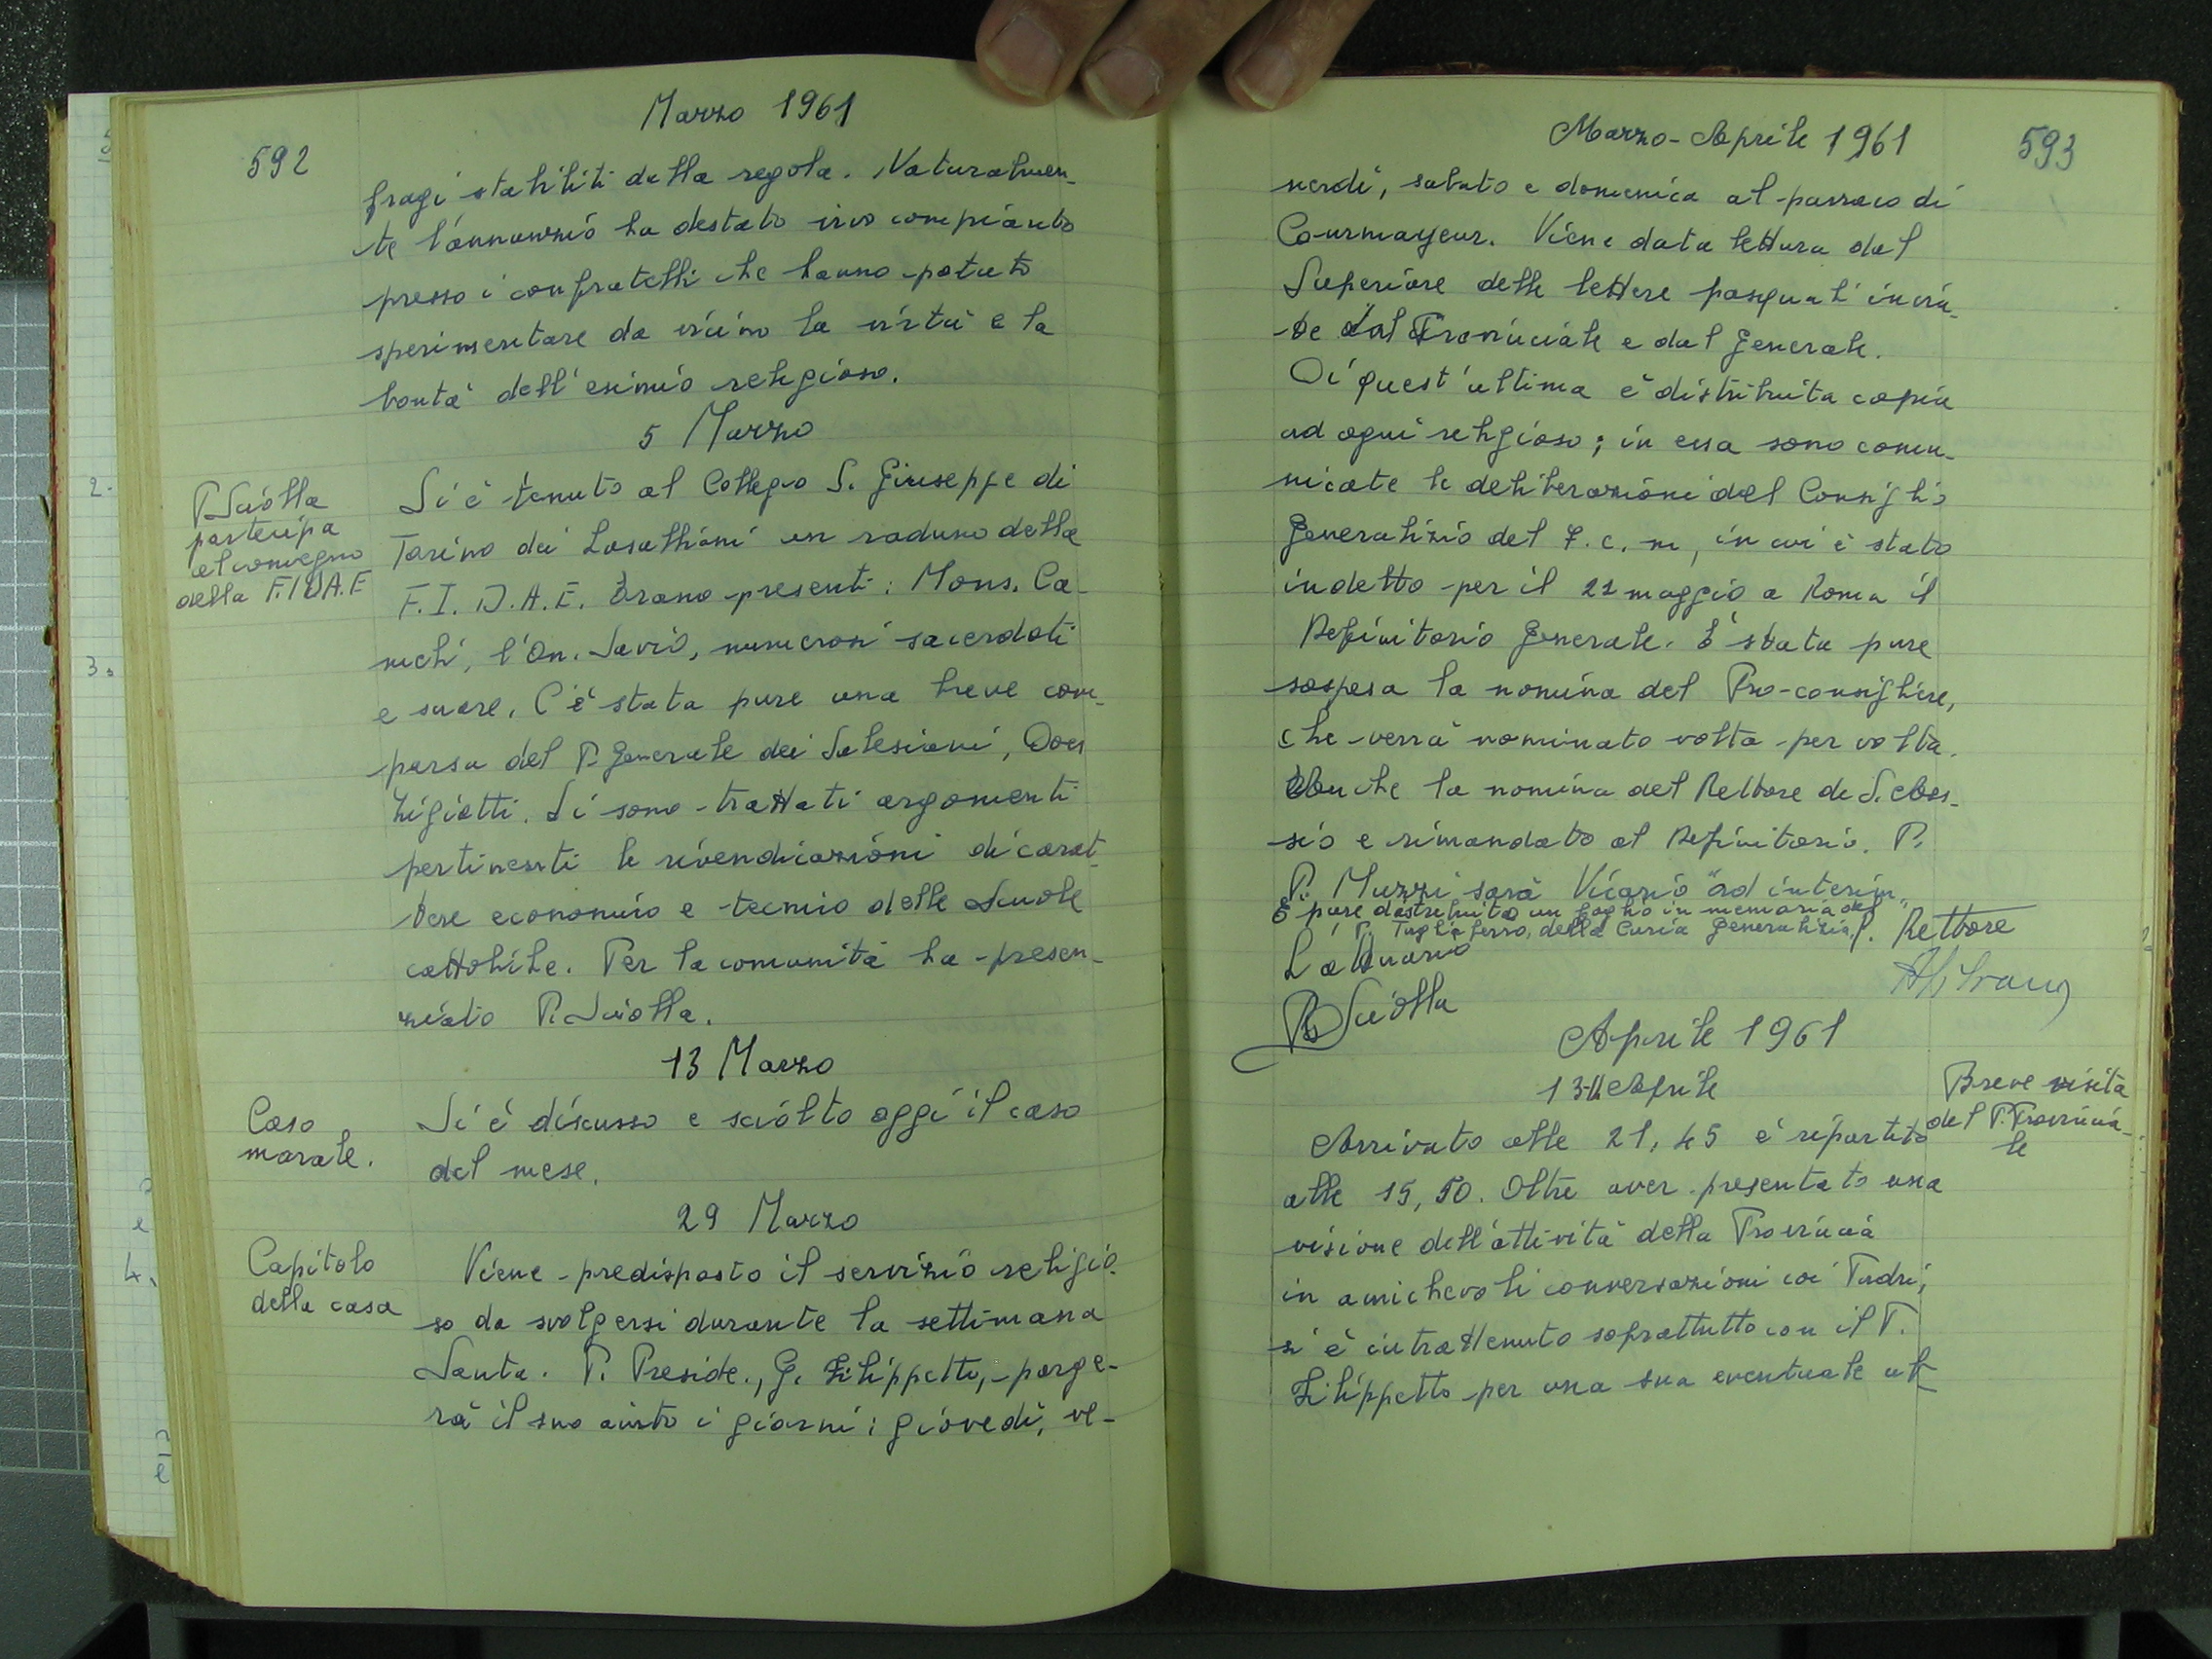 Marzo 1961
592
fragi stabiliti dalla regola. Naturalmen-
te l'annunzio ha destato vivo compianto
presso i confratelli che hanno potuto
sperimentare da vicino la virtù e la
bontà dell'esimio religioso.
5 Marzo
P. Sciolla
partecipa
al convegno
della F.I.D.A.E
Si è tenuto al Collegio S. Giuseppe di
Torino dei Lasalliani un raduno della
F. I. D. A. E. Erano presenti: Mons. Ca-
nchi, l'On. Savio, numerosi sacerdoti
e suore. C'è stata pure una breve com-
parsa del P. Generale dei Salesiani, Don
Zigiotti. Si sono trattati argomenti
pertinenti le rivendicazioni di carat-
tere economico e tecnico delle Scuole
cattoliche. Per la comunità ha presen-
ziato P. Sciolla.
13 Marzo
Caso
morale.
Si è discusso e sciolto oggi il caso
del mese.
29 Marzo
Capitolo
della casa
Viene predisposto il servizio religio-
so da svolgersi durante la settimana
Santa. P. Preside, G. Filippetto, porge-
rà il suo aiuto i giorni: giovedì, ve-
Marzo-Aprile 1961
593
nerdì, sabato e domenica al parroco di
Courmayeur. Viene data lettura dal
Superiore delle lettere pasquali invia-
te dal Provinciale e dal Generale.
Di quest'ultima è distribuita copia
ad ogni religioso; in essa sono comu-
nicate le deliberazioni del Consiglio
Generalizio del 7. c. m, in cui è stato
indetto per il 22 maggio a Roma il
Definitorio Generale. È stata pure
sospesa la nomina del Pro-consigliere,
che verrà nominato volta per volta.
Anche la nomina del Rettore di S. Ales-
sio e rimandato al Definitorio. P.
P. Muzzi sarà Vicario "ad interim"
È pure distribuito un foglio in memoria del
P. Tagliaferro, della Curia Generalizia.
P. Rettore
L'attuario
P. Sciolla
Aprile 1961
13-14 Aprile
Breve visita
del P. Provincia-
le
Arrivato alle 21,45 è ripartito
alle 15,50. Oltre aver presentato una
visione dell'attività della Provincia
in amichevoli conversazioni coi Padri,
si è intrattenuto soprattutto con il P.
Filippetto per una sua eventuale at-